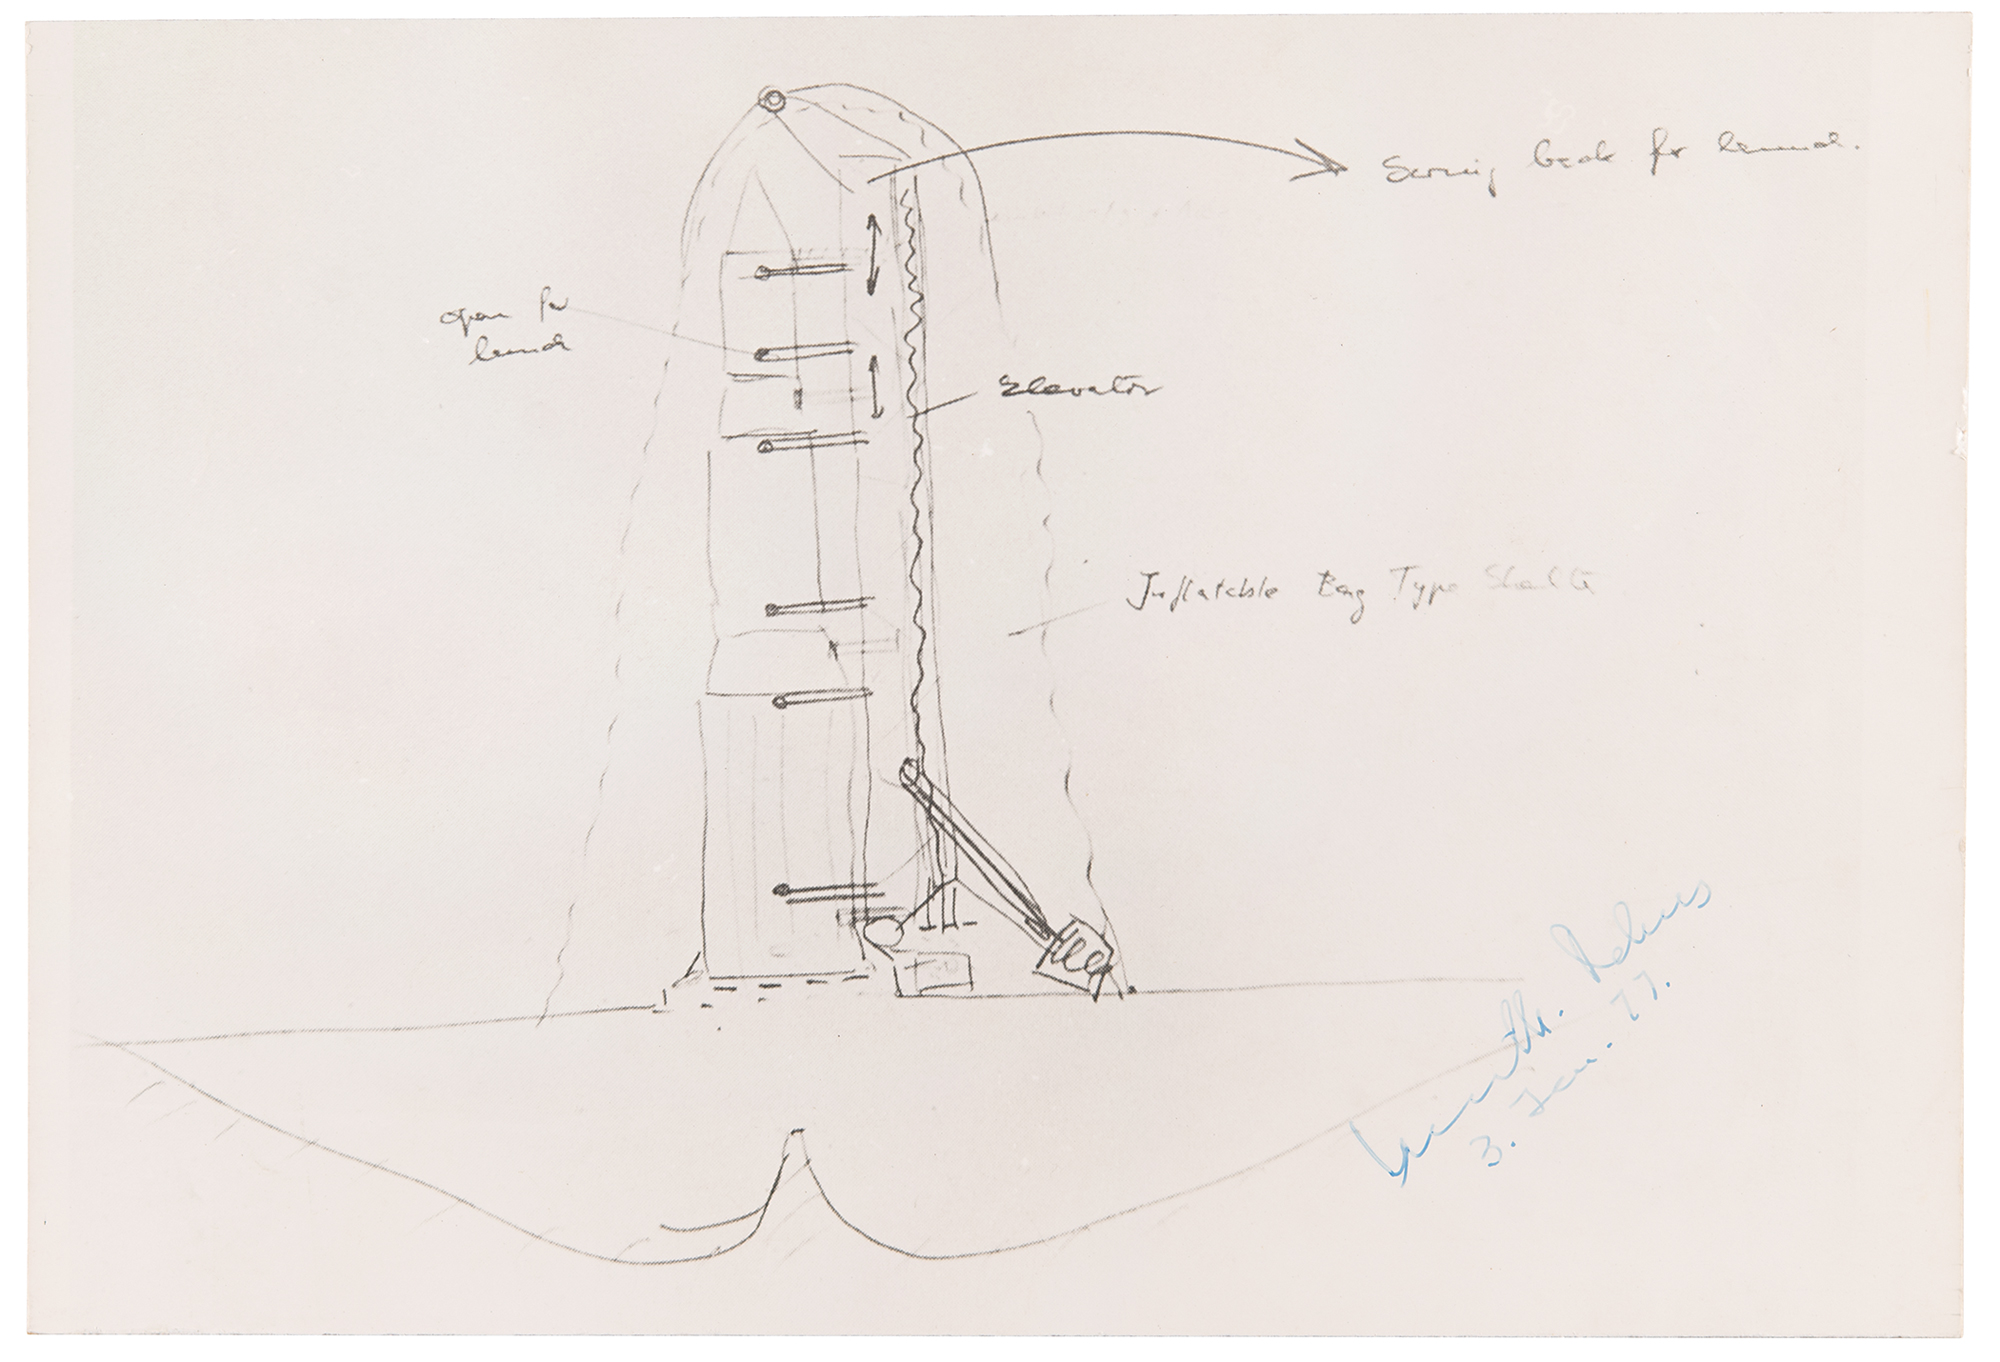 Swing back for launch.
open for
launch
Elevator
Inflatable Bag Type Shelter
Debus
3. Jan. 77.